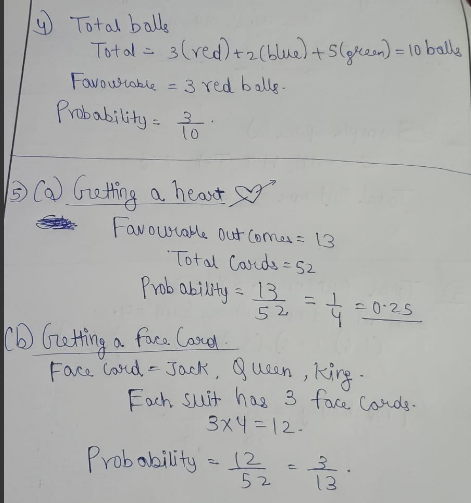 4) Total balls
Total = 3(red)+2(blue)+5(green)=10 balls
Favourable = 3 red balls.
Probability = 3/10.
5) (a) Getting a heart
Favourable outcomes = 13
Total Cards = 52
Probability = 13/52 = 1/4 = 0.25
(b) Getting a face Card.
Face Card = Jack, Queen, King.
Each suit has 3 face Cards.
3×4=12.
Probability = 12/52 = 3/13.